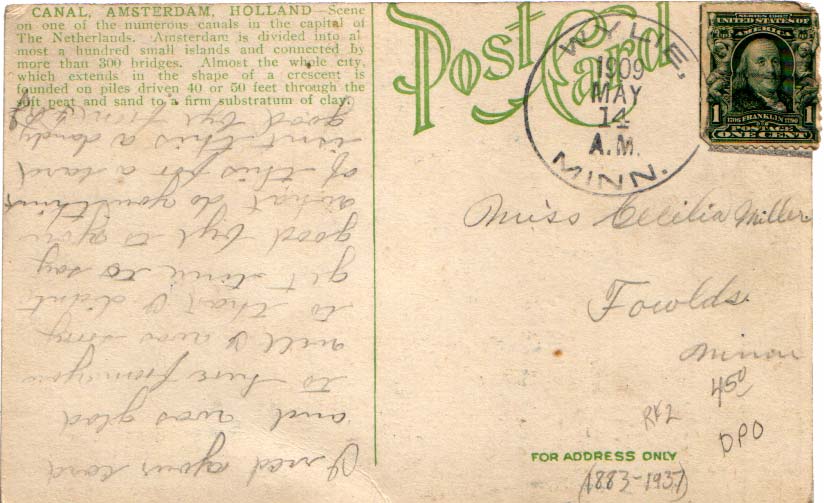 CANAL, AMSTERDAM, HOLLAND—Scene
on one of the numerous canals in the capital of
The Netherlands. Amsterdam is divided into al
most a hundred small islands and connected by
more than 300 bridges. Almost the whole city,
which extends in the shape of a crescent is
founded on piles driven 40 or 50 feet through the
soft peat and sand to a firm substratum of clay.
I red your card
and was glad
to here from you
will I was sorry
to that I didnt
get time to say
good bye to you
what do you think
of this for a card
isnt this a dandy
good bye from
Post Card
WYLIE,
1909
MAY
14
A.M.
MINN.
SERIES 1902
UNITED STATES OF
AMERICA
1706 FRANKLIN 1790
1 1
POSTAGE
ONE CENT
Miss Cecilia Miller
Fowlds.
Minn
450
R42
DPO
FOR ADDRESS ONLY
(1883-1937)